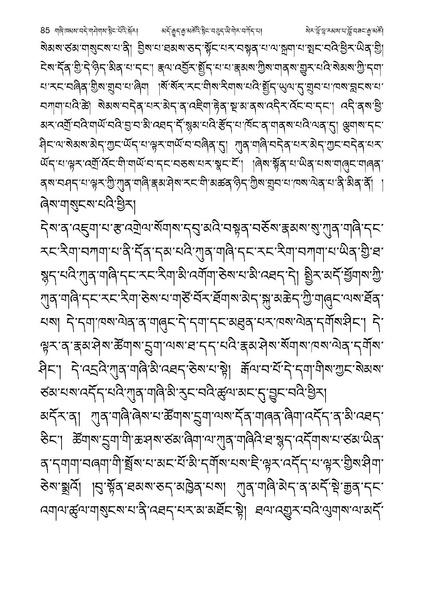 85 གཞི་ཁམས་བདེ་གཤེགས་སྙིང་པོའི་སྐོར། མདོ་རྒྱུད་རྒྱ་མཚོའི་སྙིང་བཅུད་ཡི་གེར་བཀོད་པ། སེར་ལྗོ་ལྷ་རམས་པ་བློ་བཟང་རྒྱ་མཚོ།
སེམས་ཙམ་གསུངས་པ་ནི། བྱིས་པ་ཐམས་ཅད་སྟོང་པར་བསྟན་པ་ལ་སྐྲག་པ་སྤང་བའི་ཕྱིར་ཡིན་གྱི།
ངེས་དོན་གྱི་དེ་ཉིད་མིན་པ་དང་། རྣལ་འབྱོར་སྤྱོད་པ་པ་རྣམས་ཀྱིས་གནས་གྱུར་པའི་སེམས་ཀྱི་དག་
པ་རང་བཞིན་གྱིས་གྲུབ་པ་ཞིག །སོ་སོར་རང་གིས་རིགས་པའི་སྤྱོད་ཡུལ་དུ་གྲུབ་པ་ཁས་བླངས་པ་
བཀག་པའི་ཚེ། སེམས་བདེན་པར་མེད་ན་འཇིག་རྟེན་སྔ་མ་ནས་འདིར་འོང་བ་དང་། འདི་ནས་ཕྱི་
མར་འགྲོ་བའི་གཡོ་བའི་བྱ་བ་མི་འཐད་དོ་སྙམ་པའི་རྩོད་པ་ཁོང་ན་གནས་པའི་ལན་དུ། ལྕགས་དང་
ཤིང་ལ་སེམས་མེད་ཀྱང་ཡོད་པ་ལྟར་གཡོ་བ་བཞིན་དུ། ཀུན་གཞི་བདེན་པར་མེད་ཀྱང་བདེན་པར་
ཡོད་པ་ལྟར་འགྲོ་འོང་གི་གཡོ་བ་དང་བཅས་པར་སྣང་ངོ་། །ཞེས་སྟོན་པ་ཡིན་པས་གཞུང་གཞན་
ནས་བཤད་པ་ལྟར་ཀྱི་ཀུན་གཞི་རྣམ་ཤེས་རང་གི་མཚན་ཉིད་ཀྱིས་གྲུབ་པ་ཁས་ལེན་པ་ནི་མིན་ནོ། །
ཞེས་གསུངས་པའི་ཕྱིར།
དེས་ན་འཇུག་པ་རྩ་འགྲེལ་སོགས་དབུ་མའི་བསྟན་བཅོས་རྣམས་སུ་ཀུན་གཞི་དང་
རང་རིག་བཀག་པ་ནི་དོན་དམ་པའི་ཀུན་གཞི་དང་རང་རིག་བཀག་པ་ཡིན་གྱི་ཐ་
སྙད་པའི་ཀུན་གཞི་དང་རང་རིག་མི་འགོག་ཅེས་པ་མི་འཐད་དེ། སྤྱིར་མདོ་ཕྱོགས་ཀྱི་
ཀུན་གཞི་དང་རང་རིག་ཅེས་པ་གཙོ་བོར་ཐོགས་མེད་སྐུ་མཆེད་ཀྱི་གཞུང་ལས་ཐོན་
པས། དེ་དག་ཁས་ལེན་ན་གཞུང་དེ་དག་དང་མཐུན་པར་ཁས་ལེན་དགོས་ཤིང་། དེ་
ལྟར་ན་རྣམ་ཤེས་ཚོགས་དྲུག་ལས་ཐ་དད་པའི་རྣམ་ཤེས་སོགས་ཁས་ལེན་དགོས་
ཤིང་། དེ་འདྲའི་ཀུན་གཞི་མི་འཐད་ཅེས་པ་སྟེ། རྒོལ་བ་པོ་དེ་དག་གིས་ཀྱང་སེམས་
ཙམ་པས་འདོད་པའི་ཀུན་གཞི་མི་རུང་བའི་ཚུལ་མང་དུ་བྱུང་བའི་ཕྱིར།
མདོར་ན། ཀུན་གཞི་ཞེས་པ་ཚོགས་དྲུག་ལས་དོན་གཞན་ཞིག་འདོད་ན་མི་འཐད་
ཅིང་། ཚོགས་དྲུག་གི་ཆ་ཤས་ཙམ་ཞིག་ལ་ཀུན་གཞིའི་ཐ་སྙད་འདོགས་པ་ཙམ་ཡིན་
ན་དགག་བཞག་གི་སྤྲོས་པ་མང་པོ་མི་དགོས་པས་ཇི་ལྟར་འདོད་པ་ལྟར་གྱིས་ཤིག
ཅེས་སྨྲའོ། །བུ་སྟོན་ཐམས་ཅད་མཁྱེན་པས། ཀུན་གཞི་མེད་ན་མདོ་སྡེ་རྒྱན་དང་
འགལ་ཚུལ་གསུངས་པ་ནི་འཐད་པར་མ་མཐོང་སྟེ། ཐལ་འགྱུར་བའི་ལུགས་ལ་མདོ་